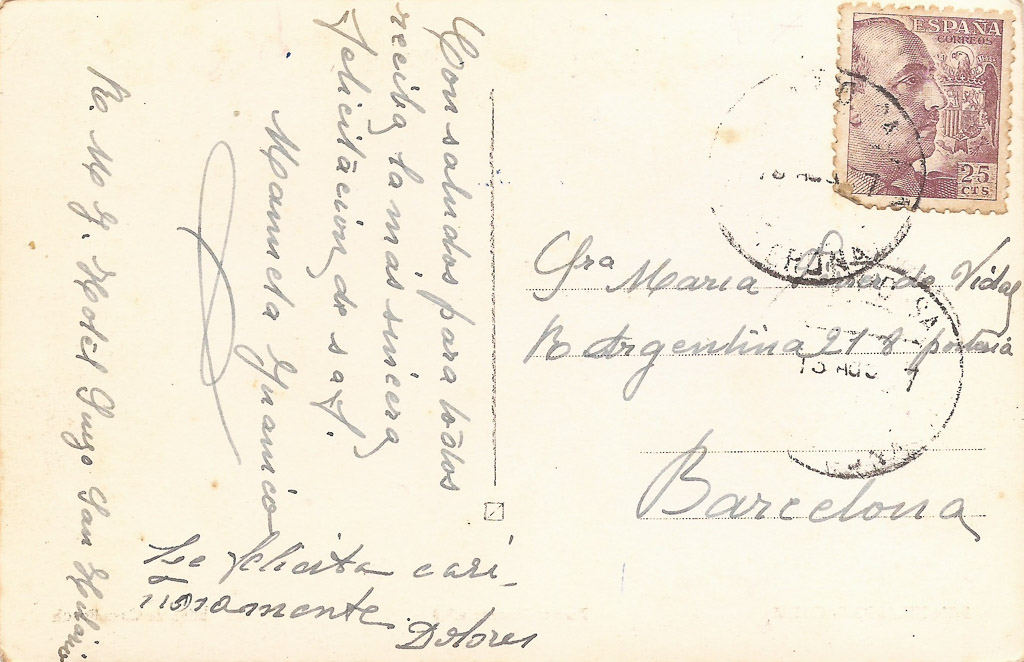 Con saludos para todos
reciba la más sincera
felicitación de s a f.
Manuela Juanico
R. M. J. Hotel Puigo San Hilario
Le felicita cari-
ñosamente
Dolores
ESPAÑA
CORREOS
25
CTS
GERONA
Sra Maria de Vidal
R Argentina 218 portería
Barcelona